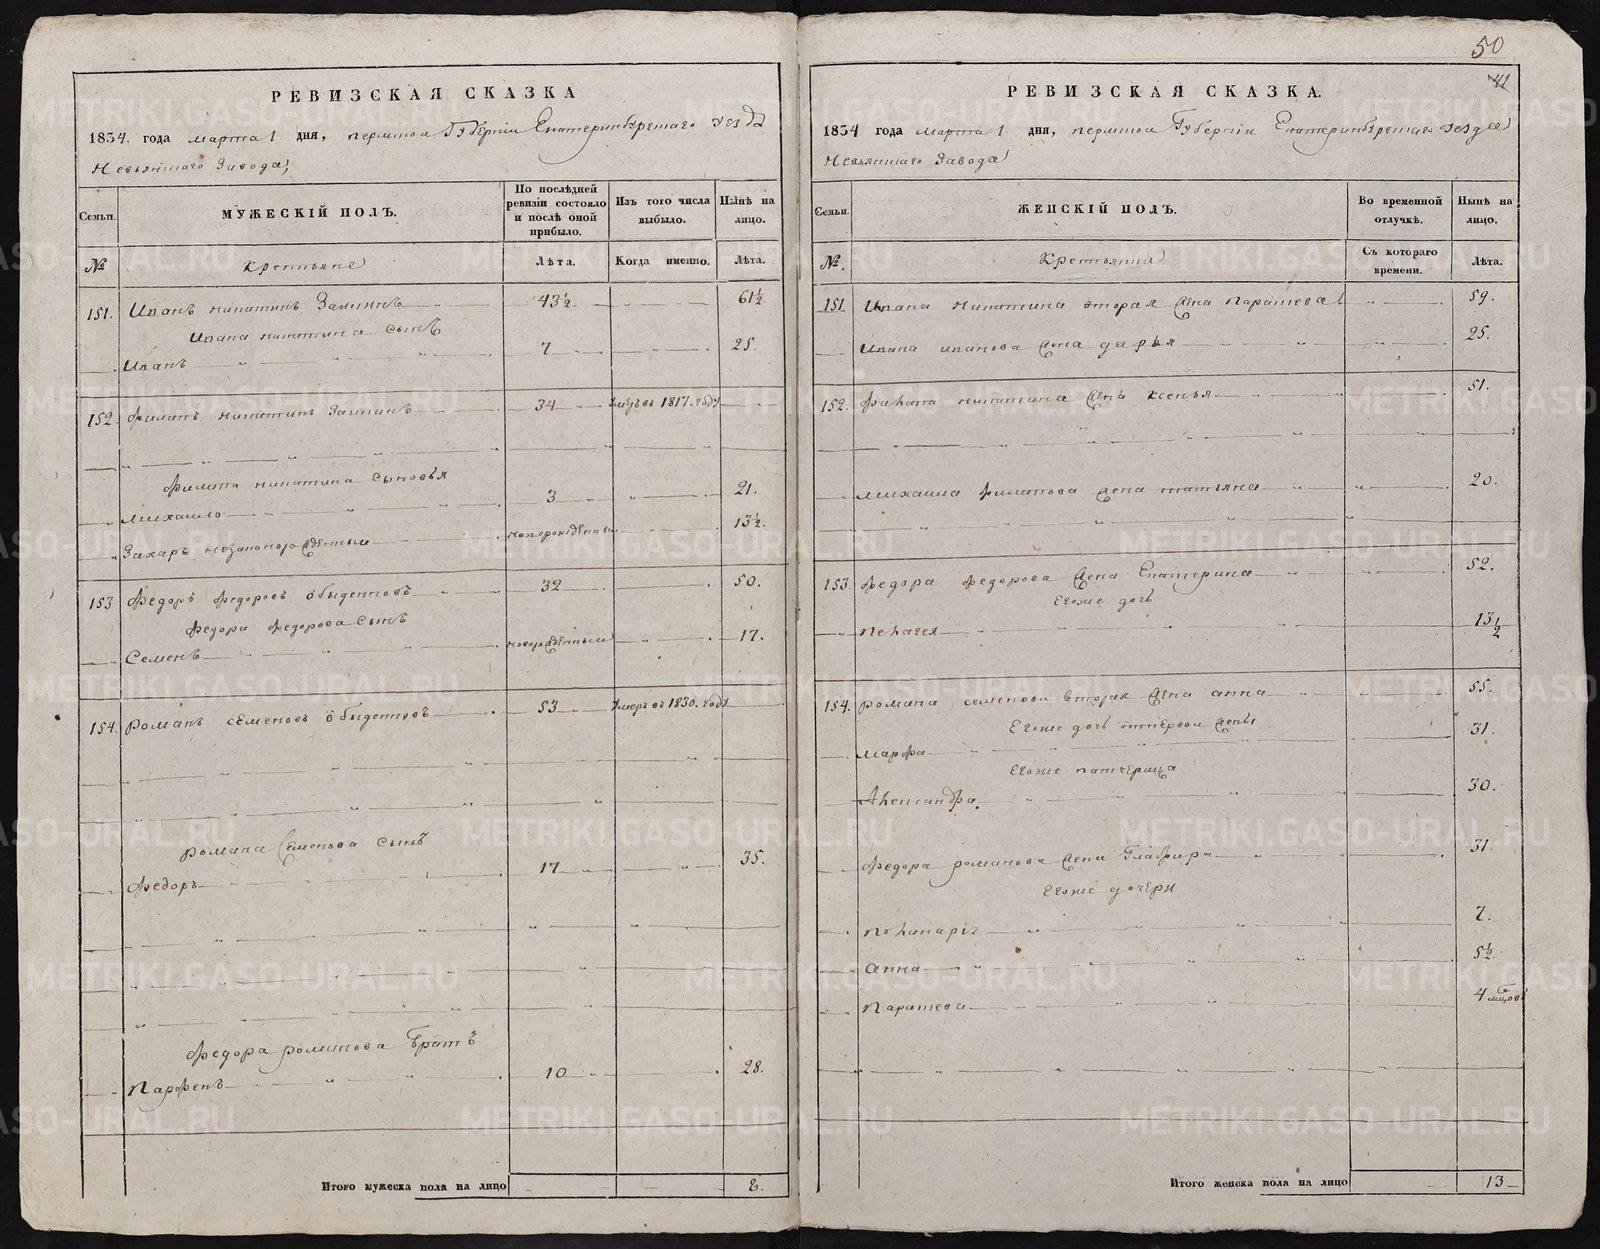 50
41
РЕВИЗСКАЯ СКАЗКА
1834. года марта 1 дня, пермской Губерніи Екатеринбургскаго уезда
Невьянскаго Завода,
Семьи.
МУЖЕСКІЙ ПОЛЪ.
По послѣдней ревизіи состояло и послѣ оной прибыло.
Изъ того числа выбыло.
Нынѣ на лицо.
№
Крестьяне
Лѣта.
Когда именно.
Лѣта.
151. Иванъ никитинъ 43½ 61½
Ивана никитина сынъ
Иванъ 7 25.
152. Филатъ никитинъ 34 умеръ въ 1817. году
Филата никитина сыновья
Михайло 3 21.
Захаръ незаконорожденный новорожденный 13½.
153 Федоръ федоровъ обыденновъ 32 50.
Федора федорова сынъ
Семенъ новорожденный 17.
154. Романъ семеновъ обыденновъ 53 умеръ въ 1830. году
Романа Семенова сынъ
Федоръ 17 35.
Федора романова братъ
Парфенъ 10 28.
Итого мужеска пола на лицо 8.
РЕВИЗСКАЯ СКАЗКА.
1834 года марта 1 дня, пермской Губерніи Екатеринбургскаго уезда
Невьянскаго Завода
Семьи.
ЖЕНСКІЙ ПОЛЪ.
Во временной отлучкѣ.
Нынѣ на лицо.
№.
Крестьянки
Съ котораго времени.
Лѣта.
151 Ивана никитина вторая жена парасковья 59.
Ивана иванова жена дарья 25.
152. Филата никитина жена ксенья 51.
Михаила филатова жена татьяна 20.
153. Федора федорова жена Екатерина 52.
Егоже дочь
Пелагея 13½
154. Романа семенова вторая жена анна 55.
Егоже дочь отпервой жены
Марфа 31.
Егоже патчерица
Александра. 30.
Федора романова жена Глафира 31.
Егоже дочери
Поликарія 7.
Анна 5½
Парасковья 4 мѣсяцовъ
Итого женска пола на лицо 13
METRIKI.GASO-URAL.RU